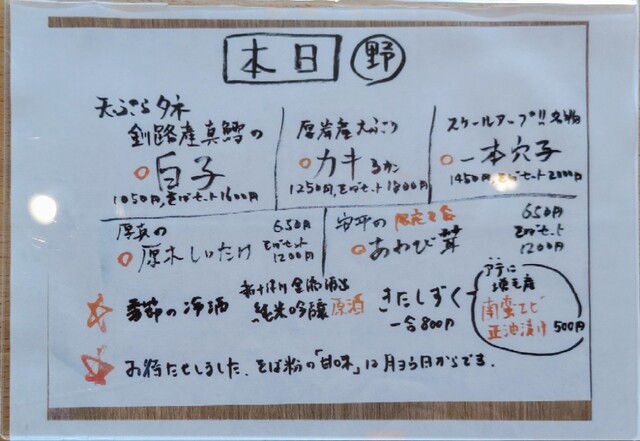 本日 野
天ぷらタネ
釧路産真鱈の
白子
1050円,そばセット1600円
厚岸産大ぶり
カキ 3カン
1250円,そばセット1800円
スケールアップ!!名物
一本穴子
1450円,そばセット2000円
厚真の
原木しいたけ
650円
そばセット
1200円
安平の
あわび茸
650円
そばセット
1200円
季節の冷酒
金滴酒造
純米吟醸 原酒
きたしずく
一合800円
アテに
増毛産
南蛮エビ
正油漬け 500円
お待たせしました、そば粉の「甘味」は